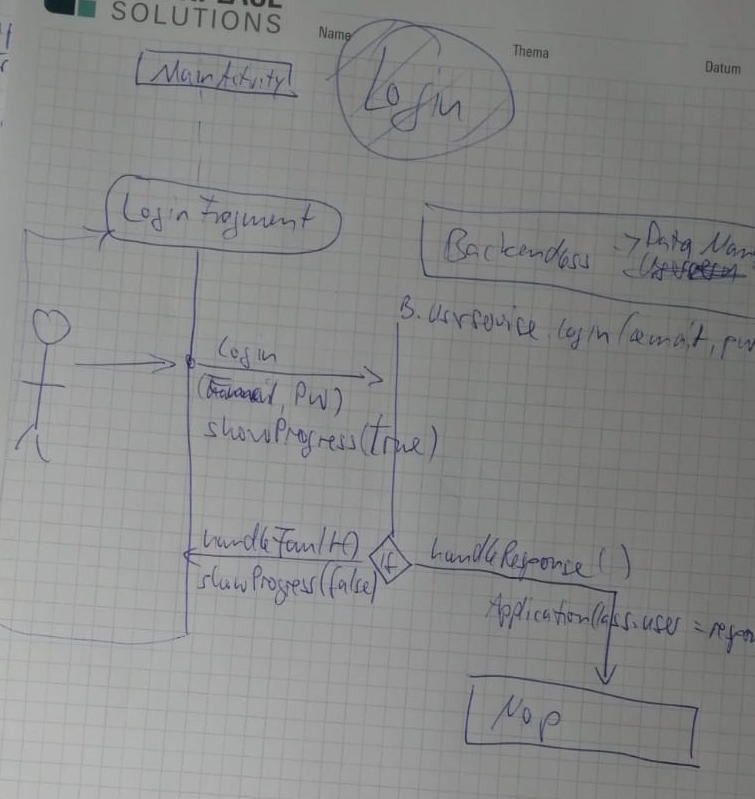 SOLUTIONS
Name
Thema
Datum
Login
MainActivity
LoginFragment
Backendless
→ Data Man
B. Userservice.login(email, pw
Login
PW)
showProgress(true)
handleFault()
showProgress(false)
If
handleResponse()
ApplicationClass.user = respon
Map